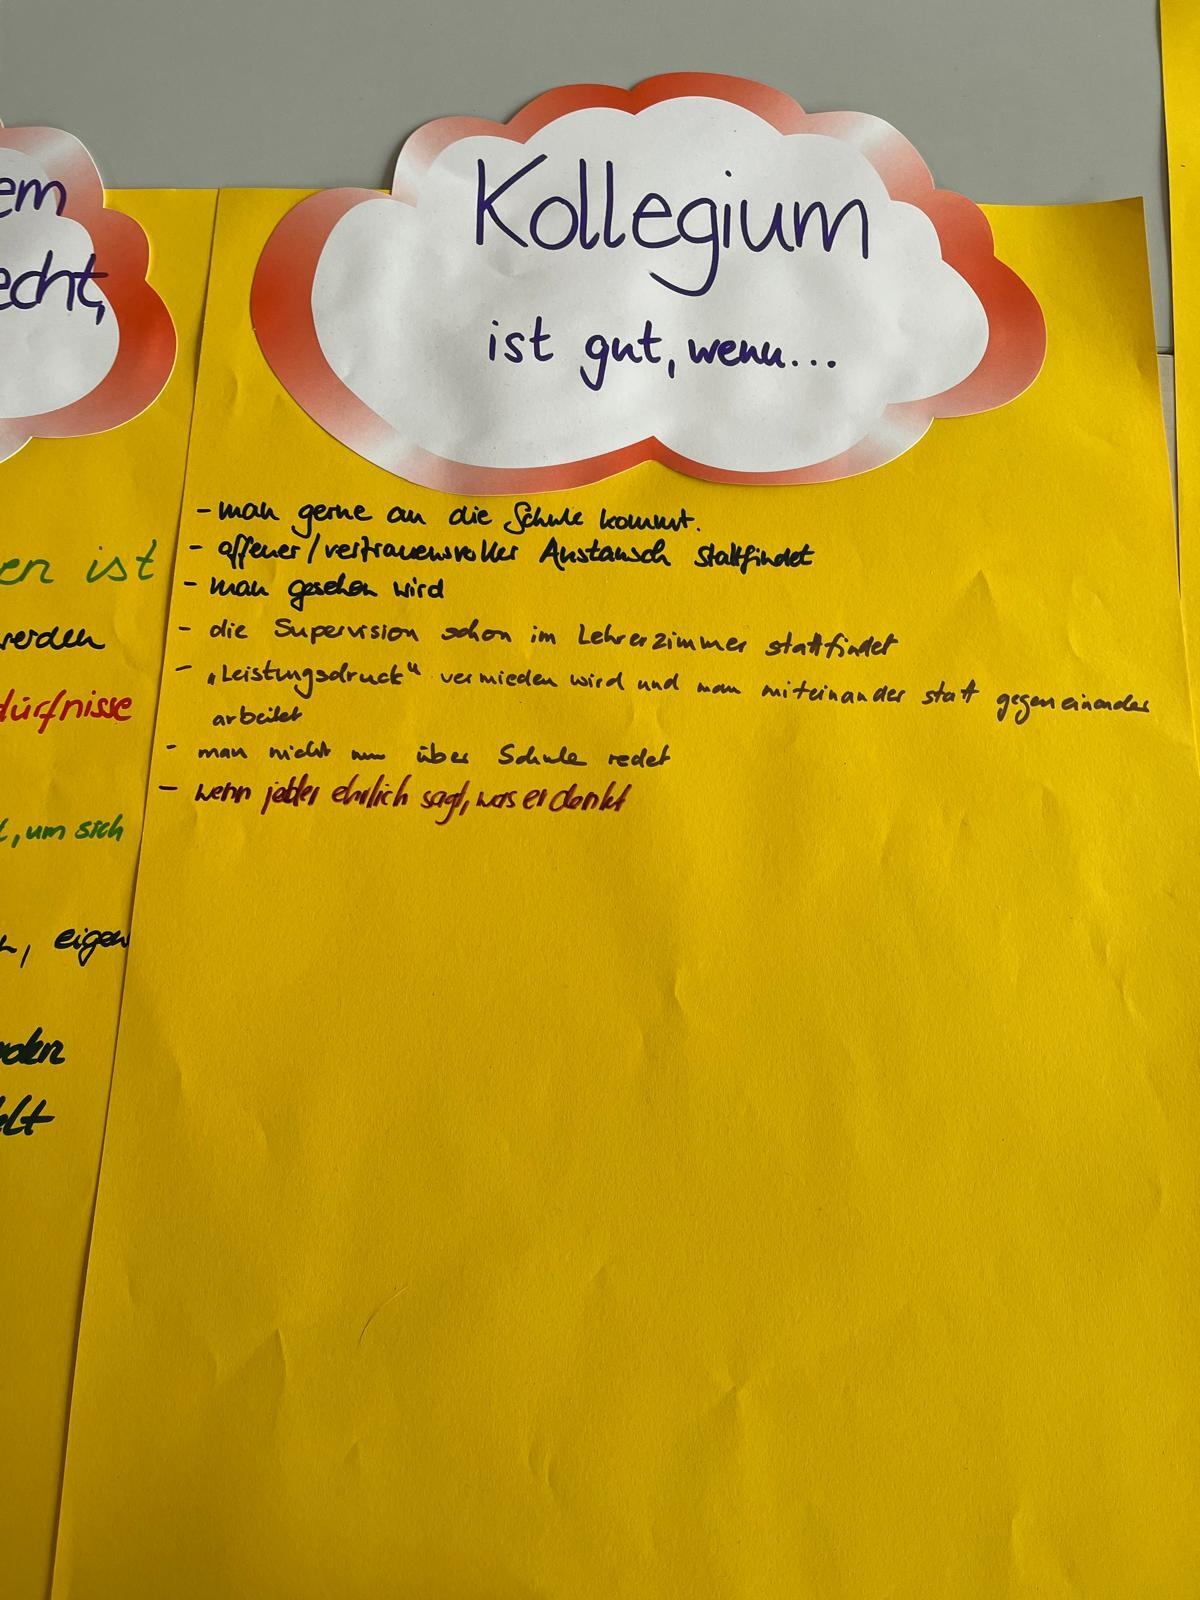 em
echt,
Kollegium
ist gut, wenn...
en ist
werden
dürfnisse
t, um sich
, eigen
rden
elt
- man gerne an die Schule kommt.
- offener/vertrauensvoller Austausch stattfindet
- man gesehen wird
- die Supervision schon im Lehrerzimmer stattfindet
- „Leistungsdruck“ vermieden wird und man miteinander statt gegeneinander
arbeitet
- man nicht nur über Schule redet
- wenn jeder ehrlich sagt, was er denkt